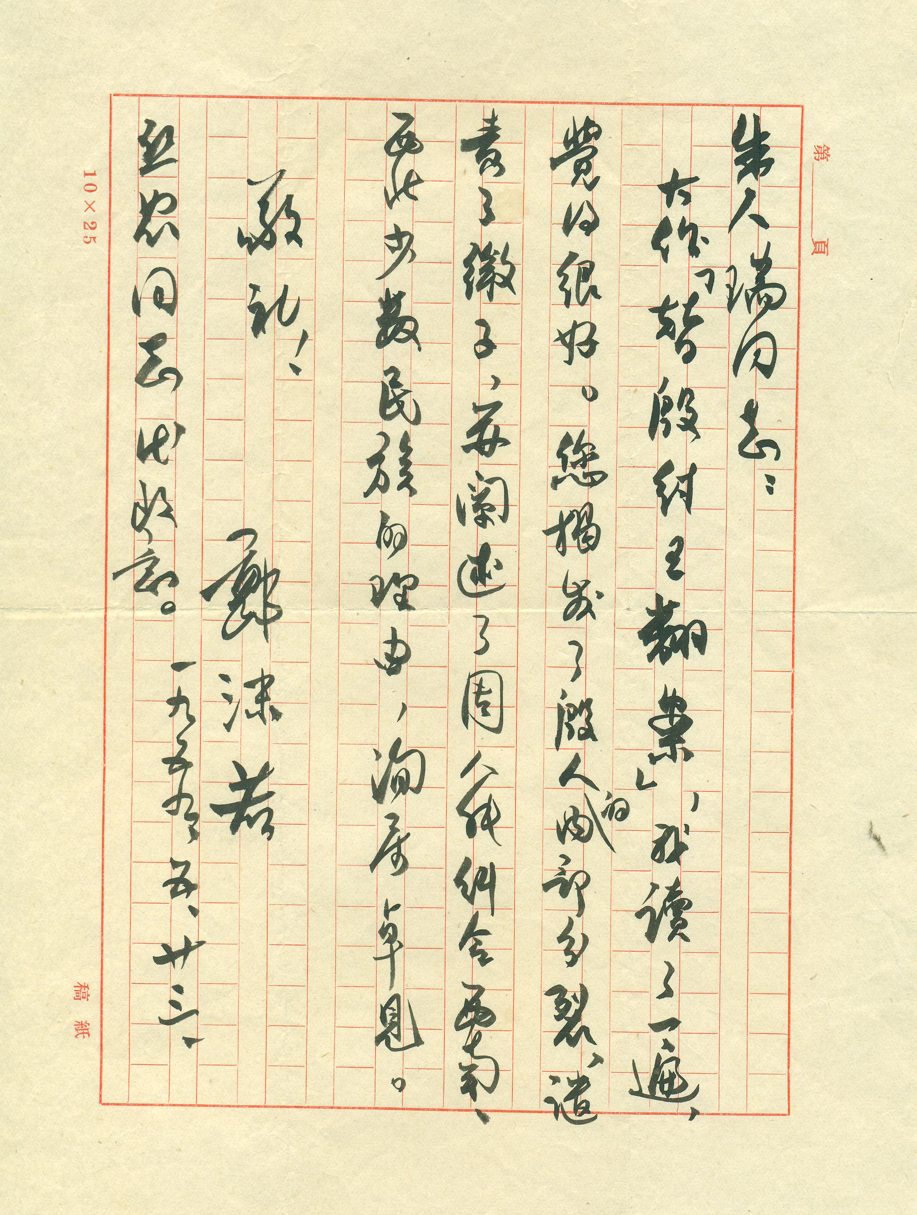 第　頁
朱人瑞同志：
大作「替殷紂王翻案」，我讀了一遍，
覺得很好。您揭发了殷人的内部分裂，譴
責了微子，并闡述了周人能糾合西南、
西北少数民族的理由，洵属卓見。
敬礼！
郭沫若
同志代致意。一九五九、五、廿三、
10×25
稿紙